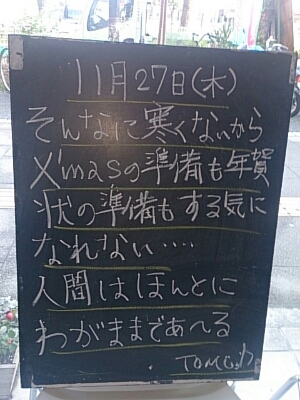 11月27日(木)
そんなに寒くないから
X'masの準備も年賀
状の準備もする気に
なれない‥‥
人間はほんとに
わがままであ〜る